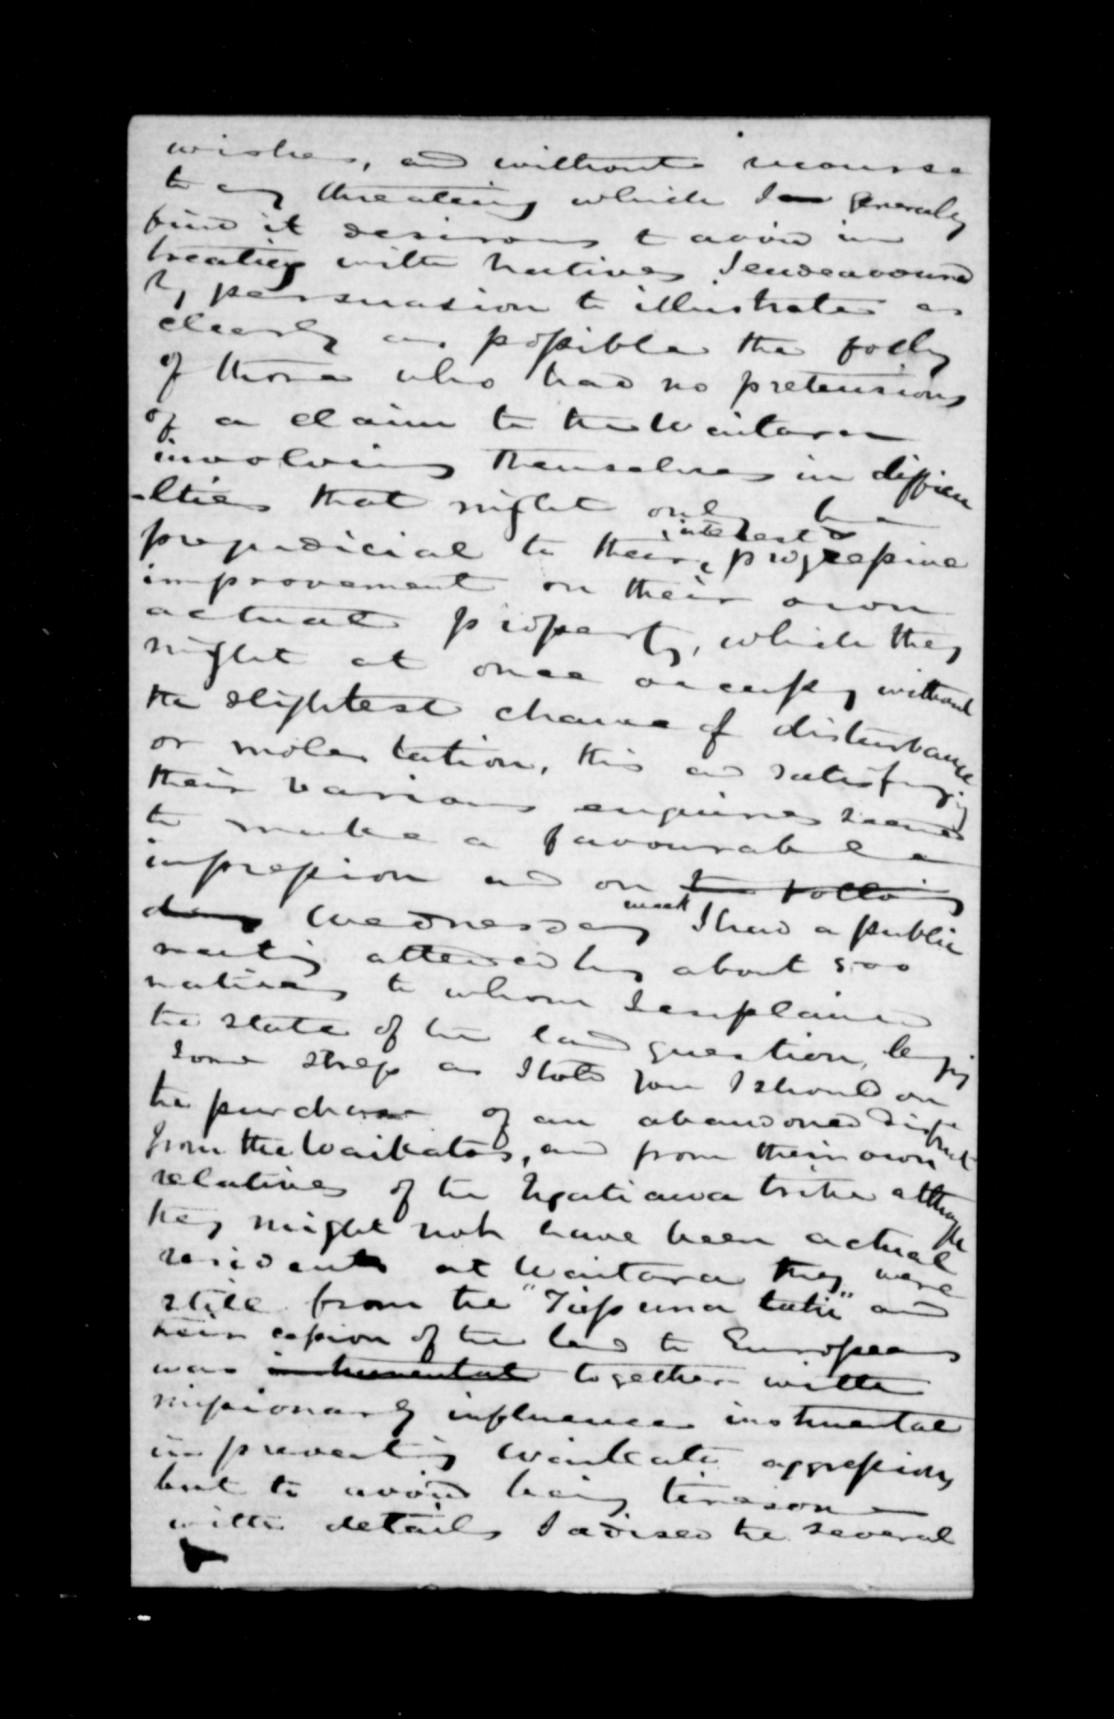 wishes, and without recourse
to any threatening which I generally
find it desirous to avoid in
treating with Natives I endeavoured
by persuasion to illustrate as
clearly as possible the folly
of those who had no pretensions
of a claim to the Waitara
involving themselves in difficu
-lties that might only be
prejudicial to their interests & progressive
improvement on their own
actual property, which they
might at once occupy without
the slightest chance of disturbance
or molestation, this and satisfying
their various enquiries seemed
to make a favourable
impression and on the following
day Wednesday week I had a public
meeting attended by about 500
natives to whom I explained
the state of the land question,
Some stress as I told you I should on
the purchase of an abandoned district
from the Waikatos, and from their own
relatives of the Ngatiawa tribe although
they might not have been actual
residents at Waitara they were
still from the "Tupuna tahi" and
their cession of the land to Europeans
was instrumental together with
missionary influence instrumental
in preventing Waikato aggression
but to avoid being tiresome
with details I advised the several